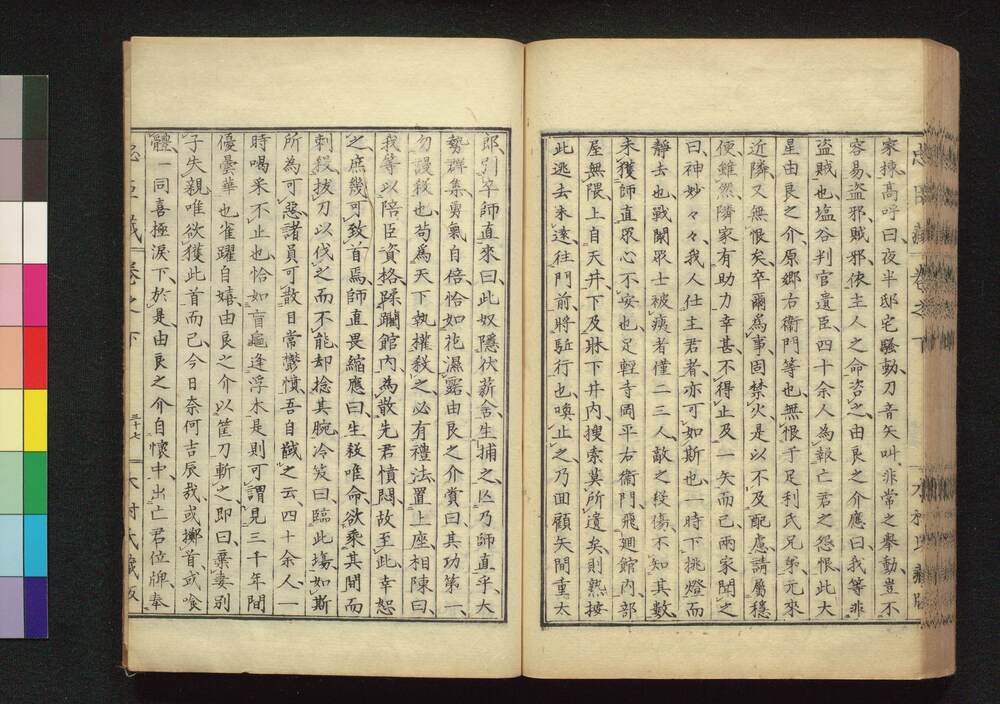 家揀高呼曰夜半邸宅騷動刀音矢叫非常之舉動豈不
容易盜邪賊邪依主人之命咨之由良之介應曰我等非
盜賊也塩谷判官遺臣四十余人為報亡君之怨恨此大
星由良之介原郷右衞門等也無恨于足利氏兄弟元來
近隣又無恨矣卒爾爲事固禁火是以不及配慮請屬穩
便雖然隣家有助力幸甚不得止及一矢而已兩家聞之
曰神妙々々我人仕主君者亦可如斯也一時下挑燈而
靜去也戰鬪眾士被痍者僅二三人敵之殺傷不知其數
未獲師直眾心不安也足輕寺岡平右衞門飛廻館内部
屋無隈上自天井下及牀下井内搜索莫所遺矣則熟按
此逃去未遠往門前將駈行也喚止之乃回顧矢間重太
郎引卒師直來曰此奴隱伏薪舍生捕之𠫤乃師直乎大
勢群集勇氣自倍恰如花濕露由良之介賞曰其功第一
勿謾殺也苟爲天下執權殺之必有禮法置上座相陳曰
我等以陪臣資格蹂躙館内為散先君憤悶故至此幸恕
之庶幾可致首焉師直畏縮應曰生殺唯命欲乘其間而
刺殺拔刀以伐之而不能却捻其腕冷笑曰臨此場如斯
所為可惡諸員可散日常鬱憤吾自馘之云四十余人一
時喝采不止也恰如盲龜逢浮木是則可謂見三千年間
優曇華也雀躍自嬉由良之介以筐刀斬之即曰棄妻別
子失親唯欲獲此首而已今日奈何吉辰哉或擲首或喰
體一同喜極淚下於是由良之介自懷中出亡君位牌奉
忠臣藏 卷之下 三十七